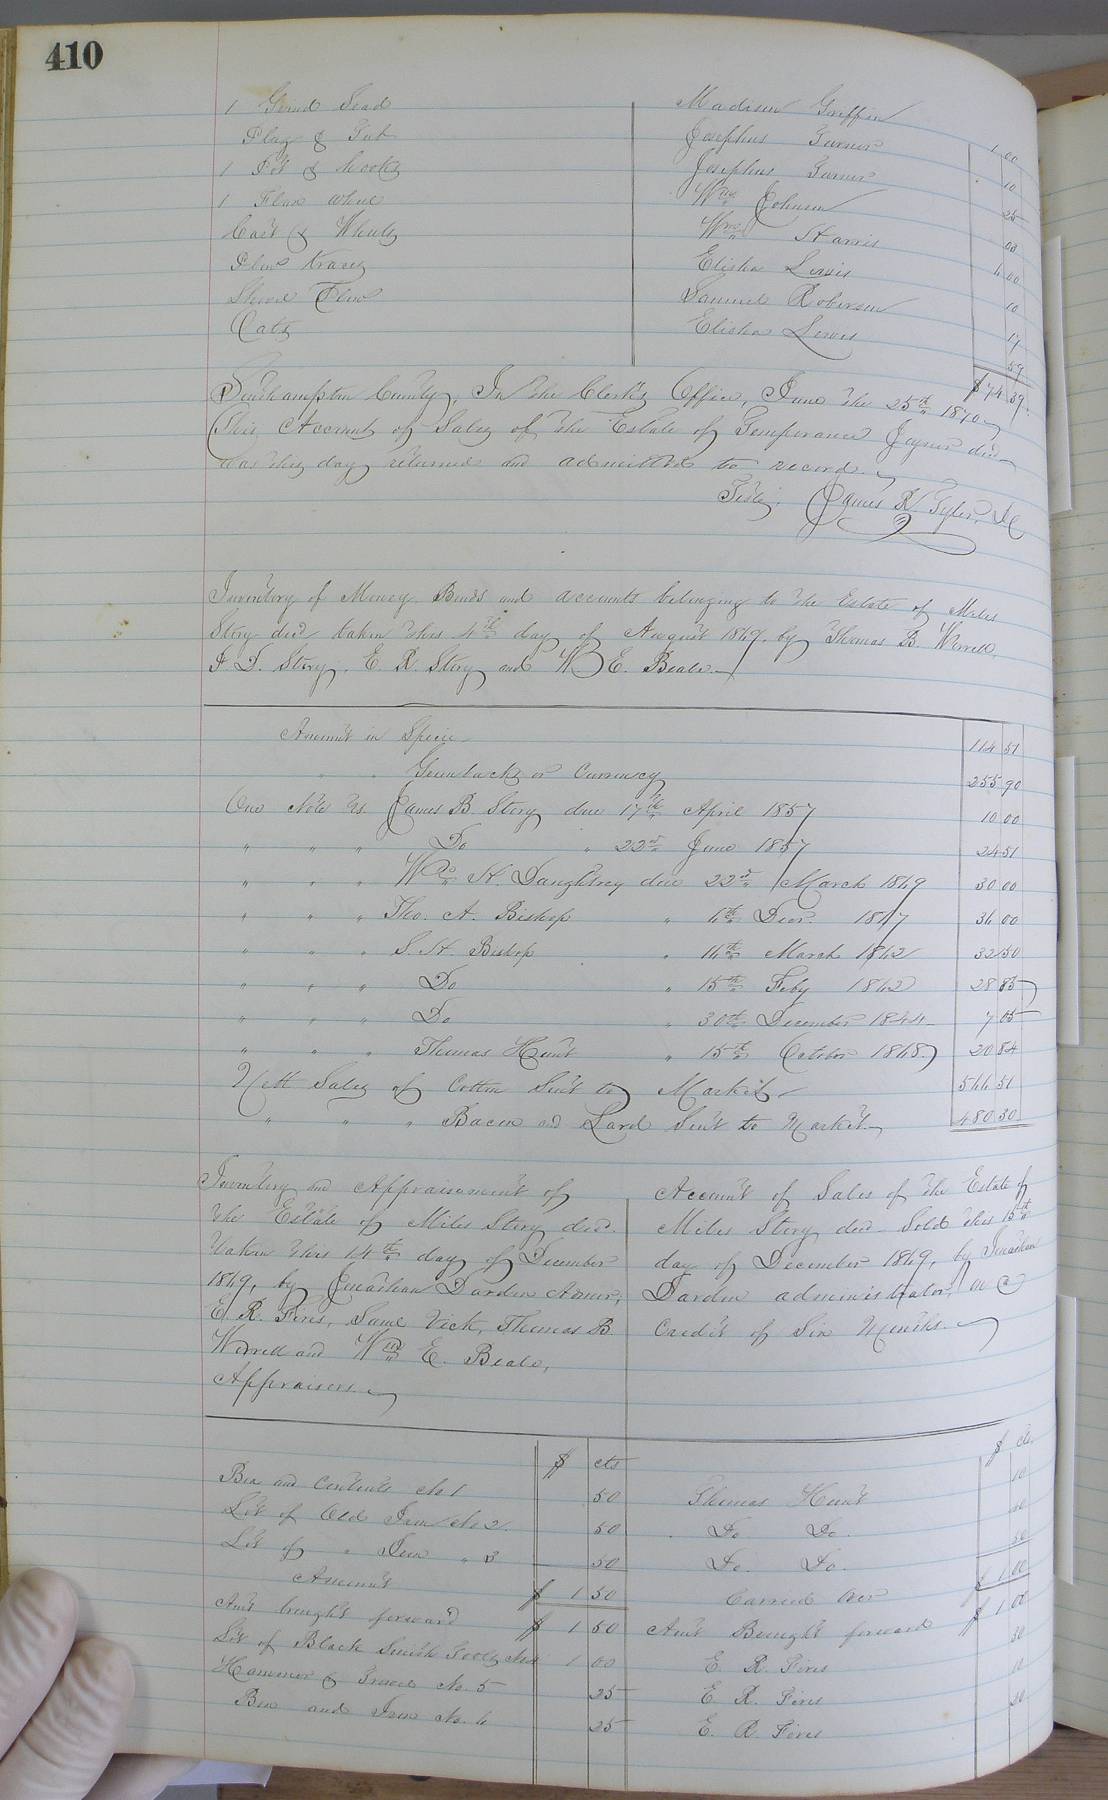 410
1 Grind Sead Madison Griffin 1 00
Plag & Tub Josephus Turner 10
1 Pot & hooks Josephus Turner 25
1 Flax wheel Wm Johnson 03
Cart & Wheels Wm Harris 6 00
Plow traces Elisha Lewis 10
Shovel Plow Samuel Roberson 17
Oats Elisha Lewis 59
$74 39
Southampton County, In the Clerks Office, June the 25th 1870
This Account of Sales of the Estate of Temperance Joyner decd
was this day returned and admitted to record.
Teste, James R. Tyler, DC
Inventory of Money Bonds and accounts belonging to the Estate of Miles
Story decd taken this 4th day of August 1869, by Thomas B. Worrell,
J. D. Story, E. R. Story and W E. Beale.
Amount in Specie 114 51
" " Greenbacks or Currency 255 90
One Note vs. James B. Story due 17th April 1857 10 00
" " " Do " 22nd June 1857 24 51
" " " Wm H. Daughtrey due 22nd March 1869 30 00
" " " Tho. A. Bishop " 6th Decr. 1867 36 00
" " " S. H. Bishop " 14th March 1862 32 50
" " " Do " 15th Feby 1862 28 85
" " " Do " 30th December 1844 7 05
" " " Thomas Hunt " 15th October 1868 20 84
Nett Sales of Cotton Sent to Market 566 51
" " " Bacon and Lard Sent to Market 480 30
Inventory and Appraisement of
the Estate of Miles Story decd.
taken this 14th day of December
1869, by Jonathan Darden Admr,
E. R. Pires, Saml Vick, Thomas B
Worrell and Wm E. Beale,
Appraisers.
Account of Sales of the Estate of
Miles Story decd Sold this 15th
day of December 1869, by Jonathan
Darden administrator, on a
Credit of Six Months.
$ cts $ cts.
Box and Contents No 1 50 Thomas Hunt 10
Lot of Old Iron No 2. 50 Do Do. 
Lot of " Iron " 3 50 Do. Do. 
Amount $ 1 50 Carried over $ 1 00
Amt brought forward $ 1 50 Amt Brought forward $ 1 00
Lot of Black Smith Tools No 4 1 00 E. R. Pires 30
Hammer & No. 5 25 E. R. Pires 10
Box and Iron No. 6 25 E. R. Pires 20